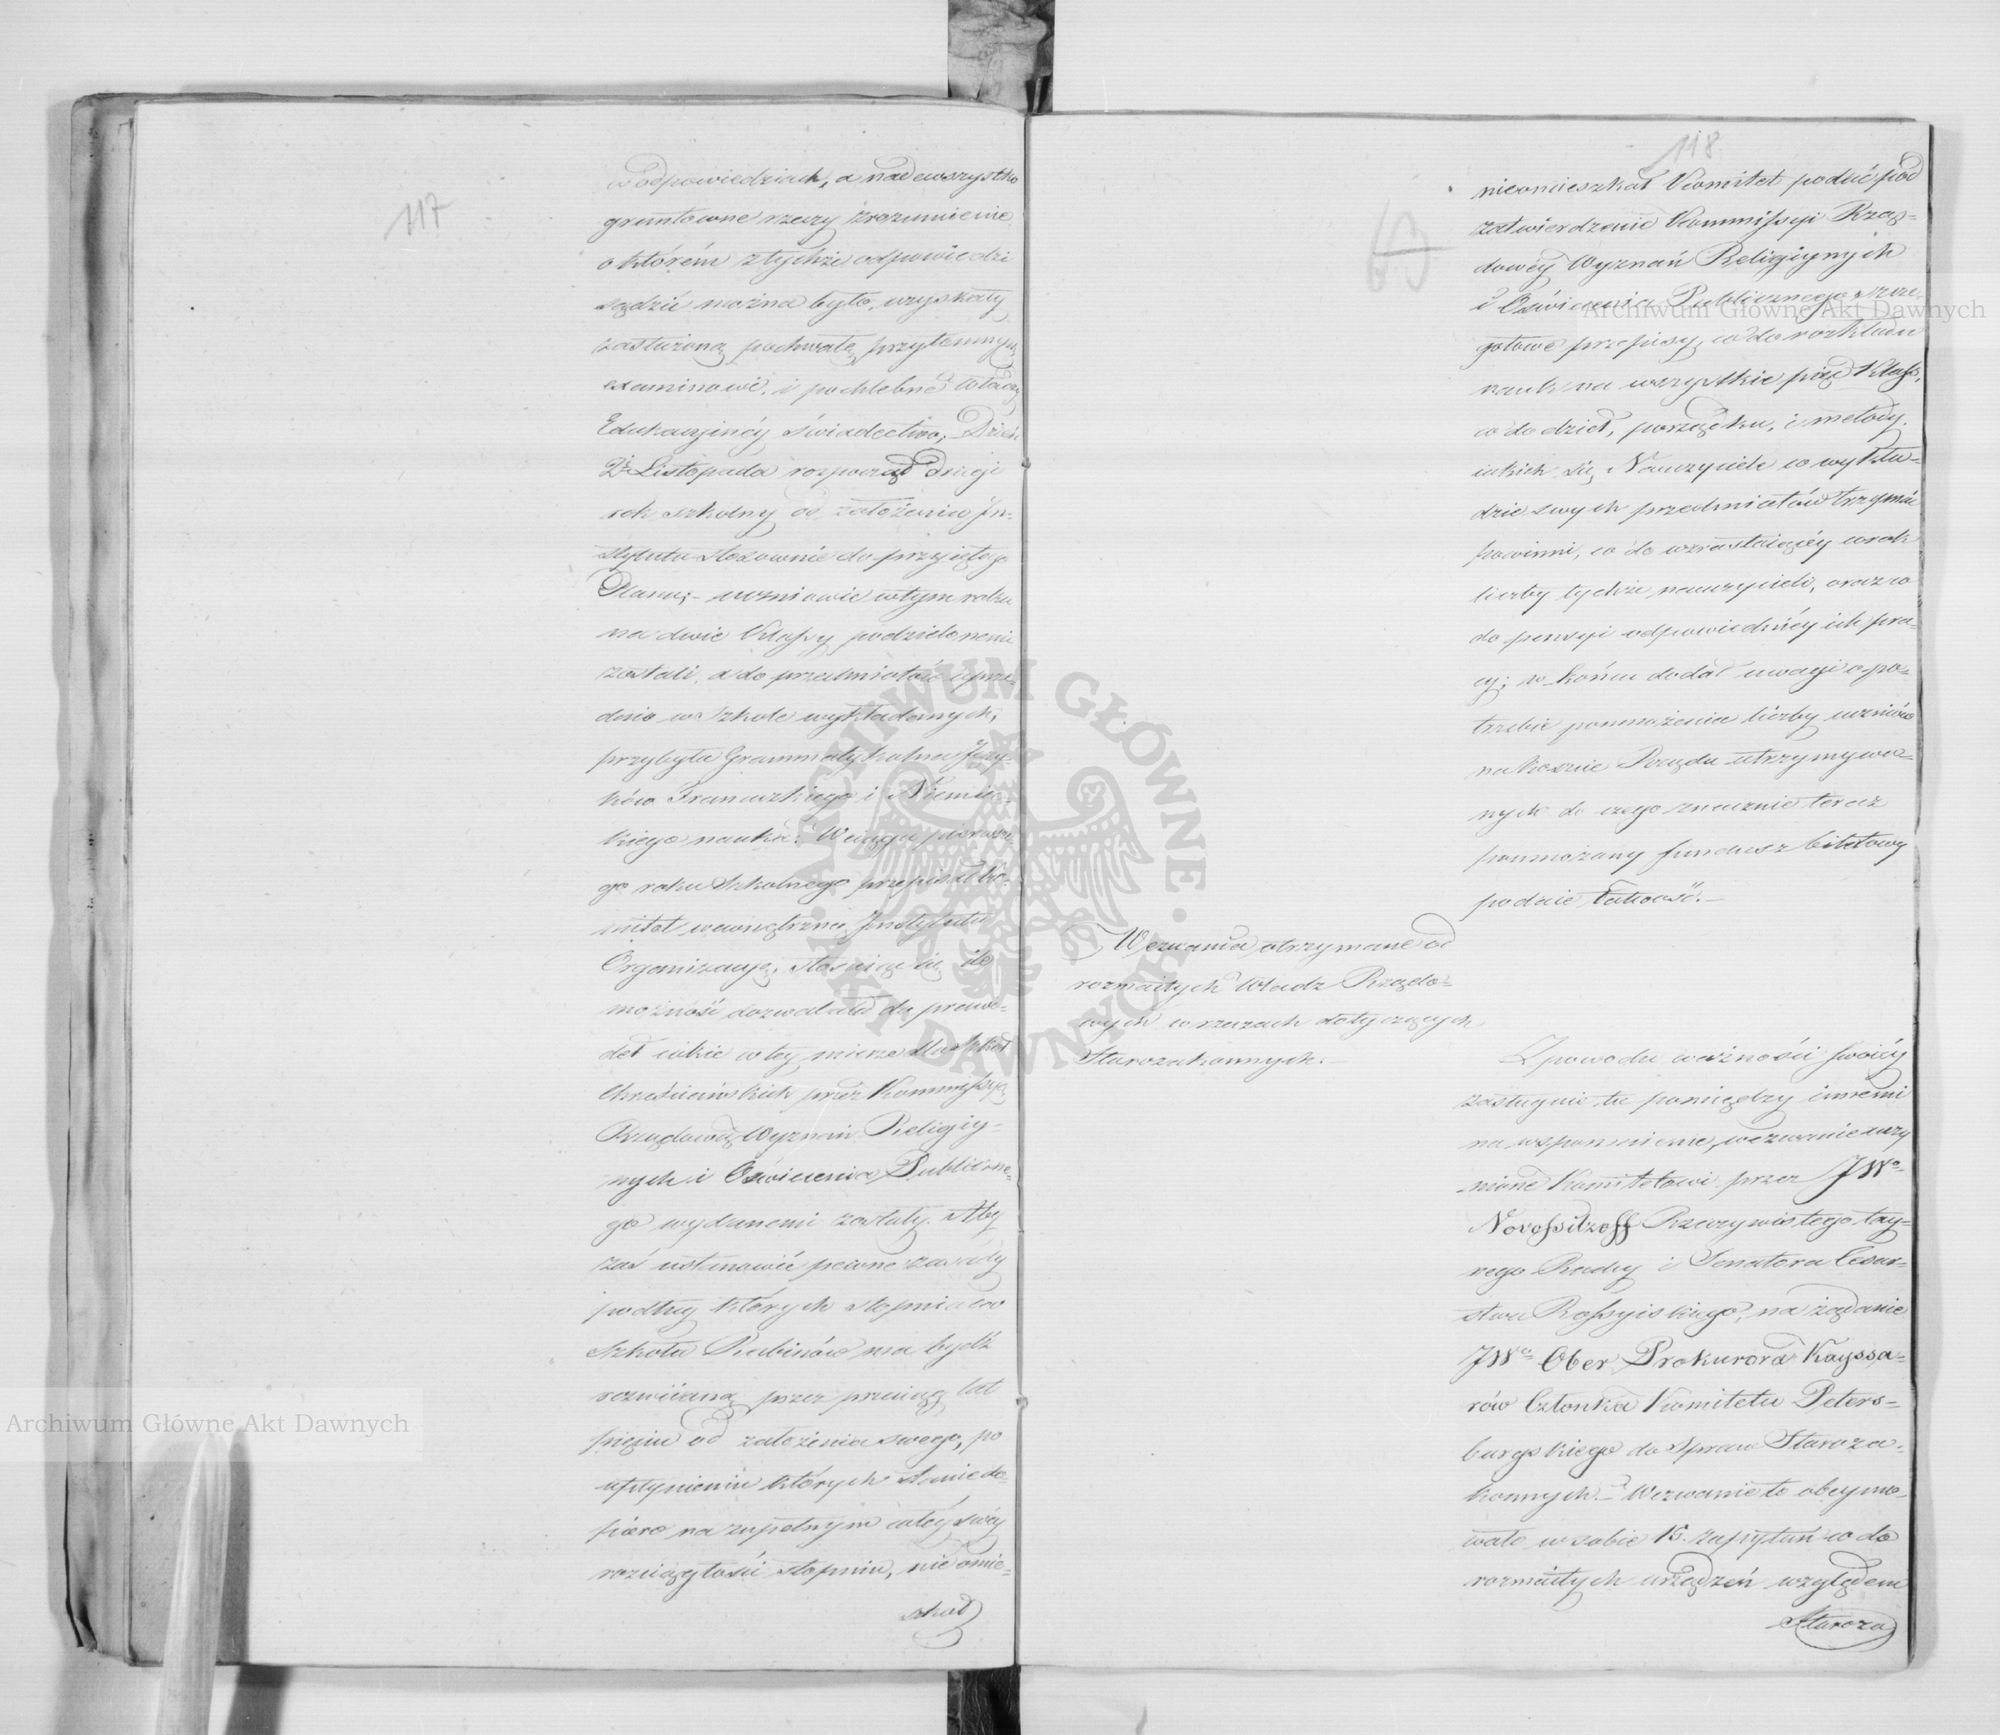 117
w odpowiedziach, a nadewszystko
gruntowne rzeczy zrozumienie
o którém z tychże odpowiedzi
sądzić można było, uzyskały
zasłużoną pochwałę przytomnych
examinowi, i pochlebné władzy
Edukacyinéy świadectwo, Dzień
Listopada rozpoczął drugi
rok szkolny od założenia In-
stytutu stosownie do przyiętego
Planu; - uczniowie w tym roku
na dwie Klassy podzielonemi
zostali, a do przedmiotów uprze-
dnio w Szkole wykładanych,
przybyła Grammatykalna Języ-
ków Francuzkiego i Niemiec-
kiego nauka. W ciągu pierwsze-
go roku Szkolnego przepisał Ko-
mitet wewnętrzną Instytutu
Organizacyą, stosuiąc się ile
możność dozwalała do prawi-
deł iakie w tey mierze dla szkół
Chrześciańskich przez Kommissyą
Rządową Wyznań Religiy-
nych i Oświecenia Publiczne-
go wydanemi zostały. Aby
zaś ustanowić pewne zasady
podług których stopniowo
Szkoła Rabinów ma bydź
rozwiianą przez przeciąg lat
pięciu od założenia swego, po
upłynieniu których stanie do-
piero na zupełnym całéy swéy
rozciągłości stopniu, nie omie-
szkał
118
nieomieszkał Komitet podać pod
zatwierdzenie Kommissyi Rzą-
dowéy Wyznań Religiynych
i Oświecenia Publicznego szcze-
gółowe przepisy, co do rozkładu
nauk na wszystkie pięć Klass,
co do dzieł, porządku, i metody,
iakich się Nauczyciele w wykła-
dzie swych przedmiotów trzymać
powinni, co do wzrastaiącéy w rok
liczby tychże nauczycieli, oraz co
do pensyi odpowiednéy ich pra-
cy; w końcu dodał uwagi o po-
trzebie pomnożenia liczby uczniów
na koszcie Rządu utrzymywa-
nych do czego znacznie teraz
pomnożony fundusz biletowy
podaie łatwość. -
Wezwania otrzymane od
rozmaitych Władz Rządo-
wych w rzeczach dotyczących
Starozakonnych. -
Z powodu ważności swoiéy
zasługuie tu pomiędzy innemi
na wspomnienie, wezwanie uczy
nione Komitetowi przez JWo
Novossilzoff Rzeczywistego tay-
nego Radcy i Senatora Cesar-
stwa Rossyiskiego, na żądanie
JWo Ober Prokurora Kayssa-
rów Członka Komitetu Peters-
burgskiego do Spraw Staroza-
konnych. - Wezwanie to obeymo-
wało w sobie 15 zapytań co do
rozmaitych urządzeń względem
Staroza
Archiwum Główne Akt Dawnych
Archiwum Główne Akt Dawnych
ARCHIWUM GŁÓWNE · AKT DAWNYCH ·